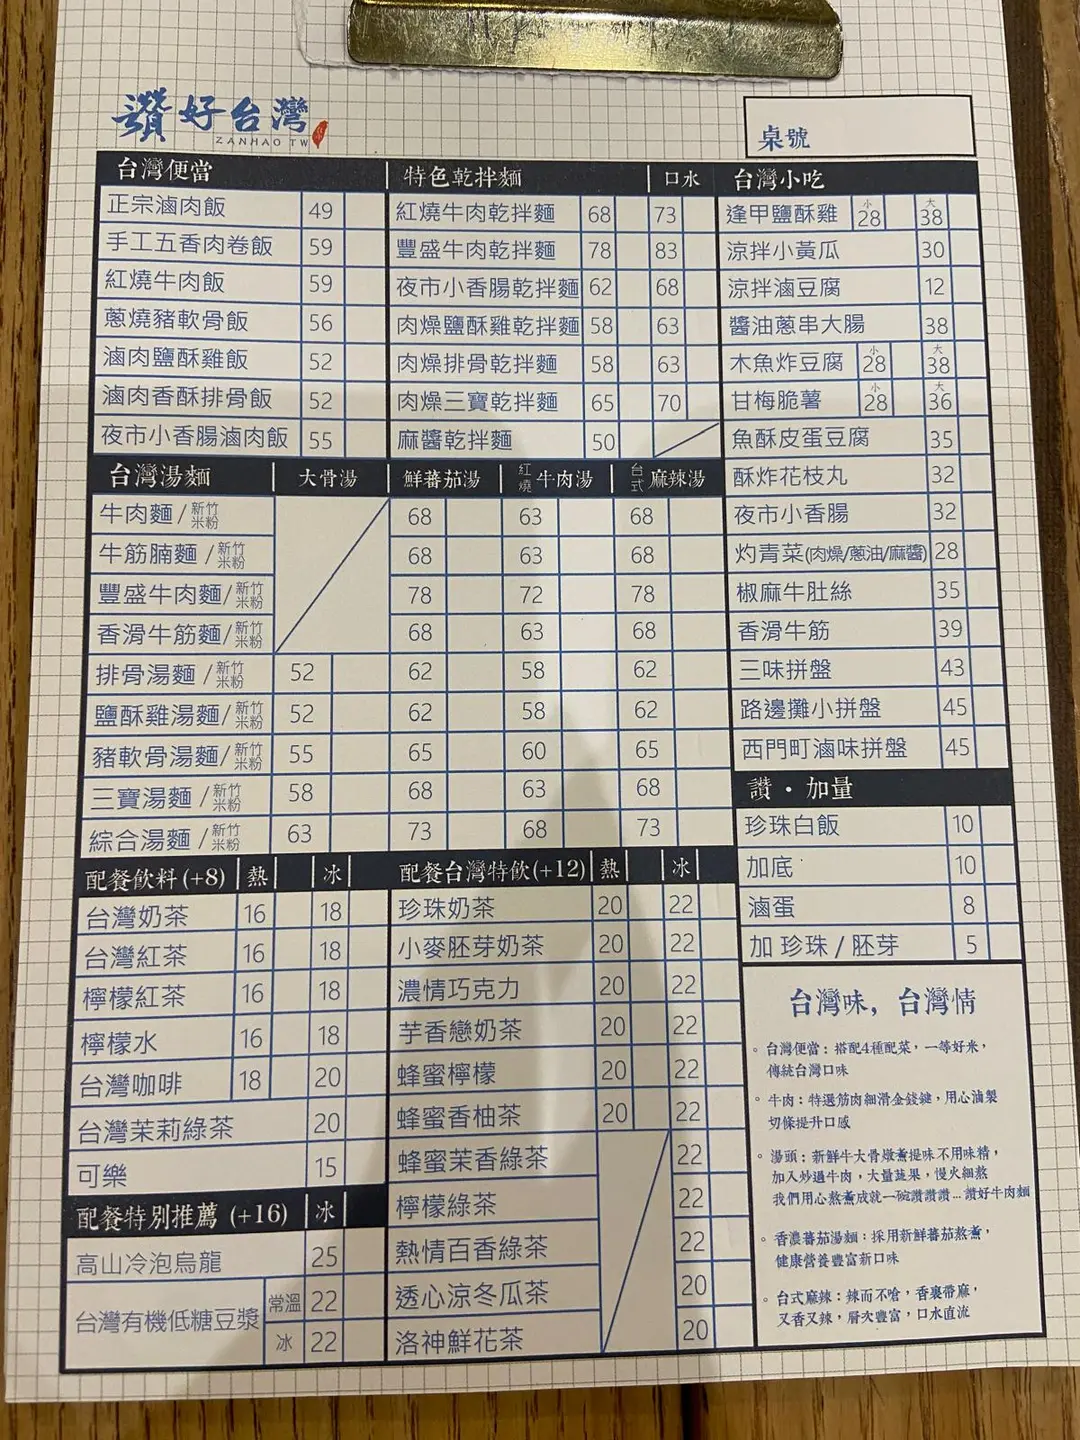 讚好台灣
ZANHAO TW
桌號
台灣便當
正宗滷肉飯 49
手工五香肉卷飯 59
紅燒牛肉飯 59
蔥燒豬軟骨飯 56
滷肉鹽酥雞飯 52
滷肉香酥排骨飯 52
夜市小香腸滷肉飯 55
特色乾拌麵 口水
紅燒牛肉乾拌麵 68 73
豐盛牛肉乾拌麵 78 83
夜市小香腸乾拌麵 62 68
肉燥鹽酥雞乾拌麵 58 63
肉燥排骨乾拌麵 58 63
肉燥三寶乾拌麵 65 70
麻醬乾拌麵 50
台灣小吃
逢甲鹽酥雞 小28 大38
涼拌小黃瓜 30
涼拌滷豆腐 12
醬油蔥串大腸 38
木魚炸豆腐 小28 大38
甘梅脆薯 小28 大36
魚酥皮蛋豆腐 35
酥炸花枝丸 32
夜市小香腸 32
灼青菜(肉燥/蔥油/麻醬) 28
椒麻牛肚絲 35
香滑牛筋 39
三味拼盤 43
路邊攤小拼盤 45
西門町滷味拼盤 45
台灣湯麵 大骨湯 鮮蕃茄湯 紅燒牛肉湯 台式麻辣湯
牛肉麵/新竹米粉 68 63 68
牛筋腩麵/新竹米粉 68 63 68
豐盛牛肉麵/新竹米粉 78 72 78
香滑牛筋麵/新竹米粉 68 63 68
排骨湯麵/新竹米粉 52 62 58 62
鹽酥雞湯麵/新竹米粉 52 62 58 62
豬軟骨湯麵/新竹米粉 55 65 60 65
三寶湯麵/新竹米粉 58 68 63 68
綜合湯麵/新竹米粉 63 73 68 73
讚・加量
珍珠白飯 10
加底 10
滷蛋 8
加 珍珠 / 胚芽 5
配餐飲料(+8) 熱 冰
台灣奶茶 16 18
台灣紅茶 16 18
檸檬紅茶 16 18
檸檬水 16 18
台灣咖啡 18 20
台灣茉莉綠茶 20
可樂 15
配餐特別推薦 (+16) 冰
高山冷泡烏龍 25
台灣有機低糖豆漿 常溫 22
冰 22
配餐台灣特飲(+12) 熱 冰
珍珠奶茶 20 22
小麥胚芽奶茶 20 22
濃情巧克力 20 22
芋香戀奶茶 20 22
蜂蜜檸檬 20 22
蜂蜜香柚茶 20 22
蜂蜜茉香綠茶 22
檸檬綠茶 22
熱情百香綠茶 22
透心涼冬瓜茶 20
洛神鮮花茶 20
台灣味，台灣情
。台灣便當：搭配4種配菜，一等好米，
傳統台灣口味
。牛肉：特選筋肉細滑金錢腱，用心滷製
切條提升口感
。湯頭：新鮮牛大骨燉熬提味不用味精，
加入炒過牛肉，大量蔬果，慢火細熬
我們用心熬煮成就一碗讚讚讚...讚好牛肉麵
。香濃蕃茄湯麵：採用新鮮蕃茄熬煮，
健康營養豐富新口味
。台式麻辣：辣而不嗆，香裏帶麻，
又香又辣，層次豐富，口水直流